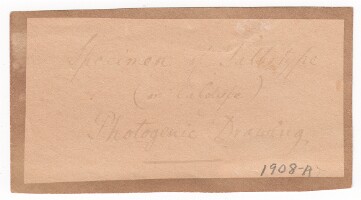 Specimen of Talbotype
(or Calotype)
Photogenic Drawing
1908-A